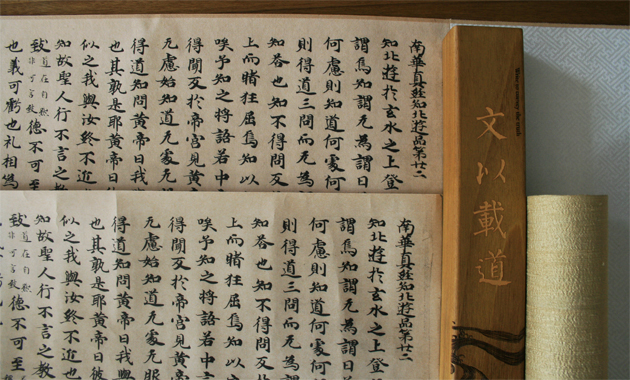 文以載道
南華真經知北遊品第廿二
知北遊於玄水之上登
謂焉知謂无為謂曰
何慮則知道何處何
則得道三問而无為
知荅也知不得問反
上而睹狂屈焉知以
唉予知之將語若中
得問反於帝宮見黃
无慮始知道无處无
得道知問黃帝曰我
也其孰是耶黃帝曰
似之我與汝終不近
知故聖人行不言之
致道在自然非可言致德不可至
也義可虧也礼相偽
南華真經知北遊品第廿二
知北遊於玄水之上登
謂焉知謂无為謂曰
何慮則知道何處何
則得道三問而无為
知荅也知不得問反
上而睹狂屈焉知以
唉予知之將語若中言
得問反於帝宮見黃
无慮始知道无處无服
得道知問黃帝曰我
也其孰是耶黃帝曰彼
似之我與汝終不近也
知故聖人行不言之教
致道在自然非可言致德不可至